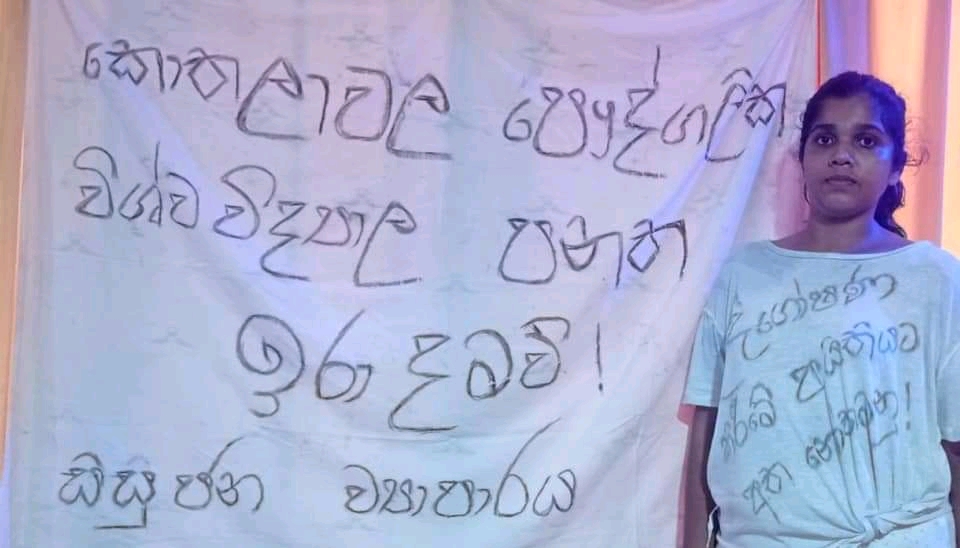 කොතලාවල පෞද්ගලික
විශ්ව විද්‍යාල පනත
ඉරා දමව්!
සිසු ජන ව්‍යාපාරය
උද්ඝෝෂණ
කිරීමේ අයිතියට
අත නොතබනු!